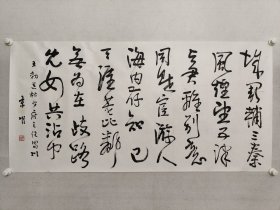 城阙辅三秦
風煙望五津
与君離别意
同是宦游人
海内存知己
天涯若比鄰
無為在歧路
儿女共沾巾
王勃送杜少府之任蜀州